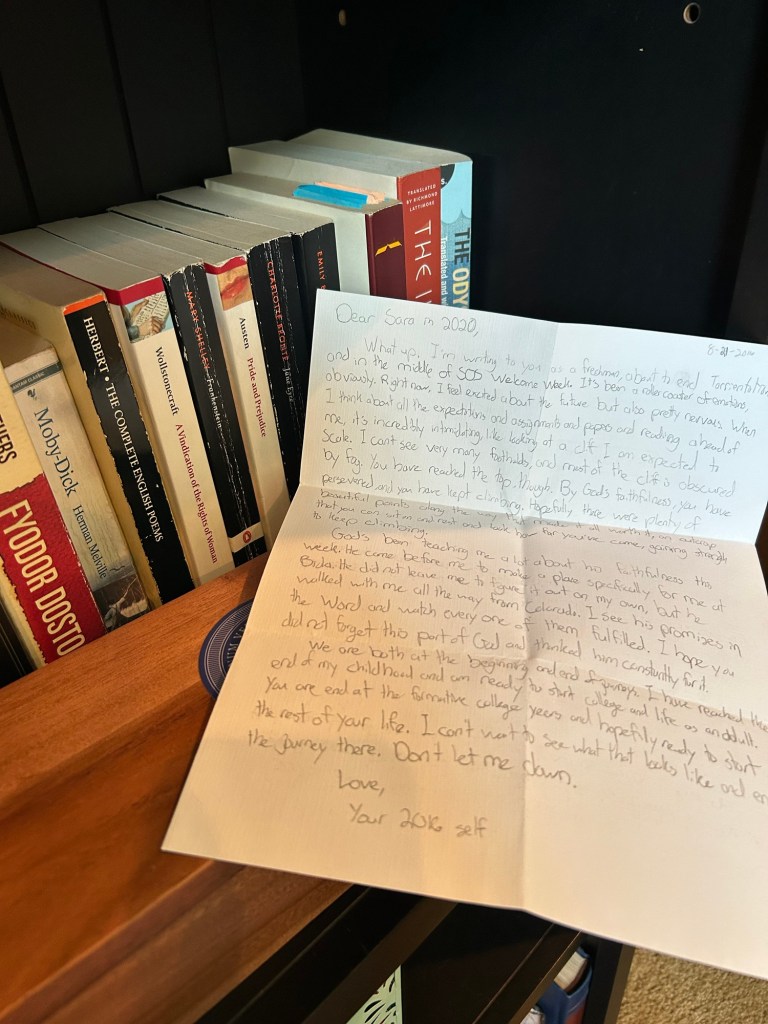 THERS
FYODOR DOSTO
Moby-Dick
Herman Melville
HERBERT • THE COMPLETE ENGLISH POEMS
Wollstonecraft
A Vindication of the Rights of Woman
MARY SHELLEY Frankenstein
Austen
Pride and Prejudice
CHARLOTTE BRONTË Jane Eyre
EMILY B
TRANSLATED
BY RICHMOND
LATTIMORE
THE I
S.
THE ODY
Translated and
Dear Sara in 2020,
8-21-2016
What up, I'm writing to you as a freshman, about to end Torreontolita
and in the middle of SOS Welcome Week. It's been a rollercoaster of emotions,
obviously. Right now, I feel excited about the future but also pretty nervous. When
I think about all the expeditions and assignments and papers and reading ahead of
me, it's incredibly intimidating, like looking at a cliff I am expected to
scale. I can't see very many footholds, and most of the cliff is obscured
by fog. You have reached the top, though. By God's faithfulness, you have
persevered and you have kept climbing. Hopefully, there were plenty of
beautiful points along the way that made it all worth it, an outcrop
that you can sit on and rest and look how far you've come, gaining strength
to keep climbing.
God's been teaching me a lot about his faithfulness this
week. He came before me to make a place specifically for me at
Biola. He did not leave me to figure it out on my own, but he
walked with me all the way from Colorado. I see his promises in
the Word and watch every one of them fulfilled. I hope you
did not forget this part of God and thanked him constantly for it.
We are both at the beginning and end of journeys. I have reached the
end of my childhood and am ready to start college and life as an adult.
You are end at the formative college years and hopefully ready to start
the rest of your life. I can't wait to see what that looks like and en
the journey there. Don't let me down.
Love,
Your 2016 self